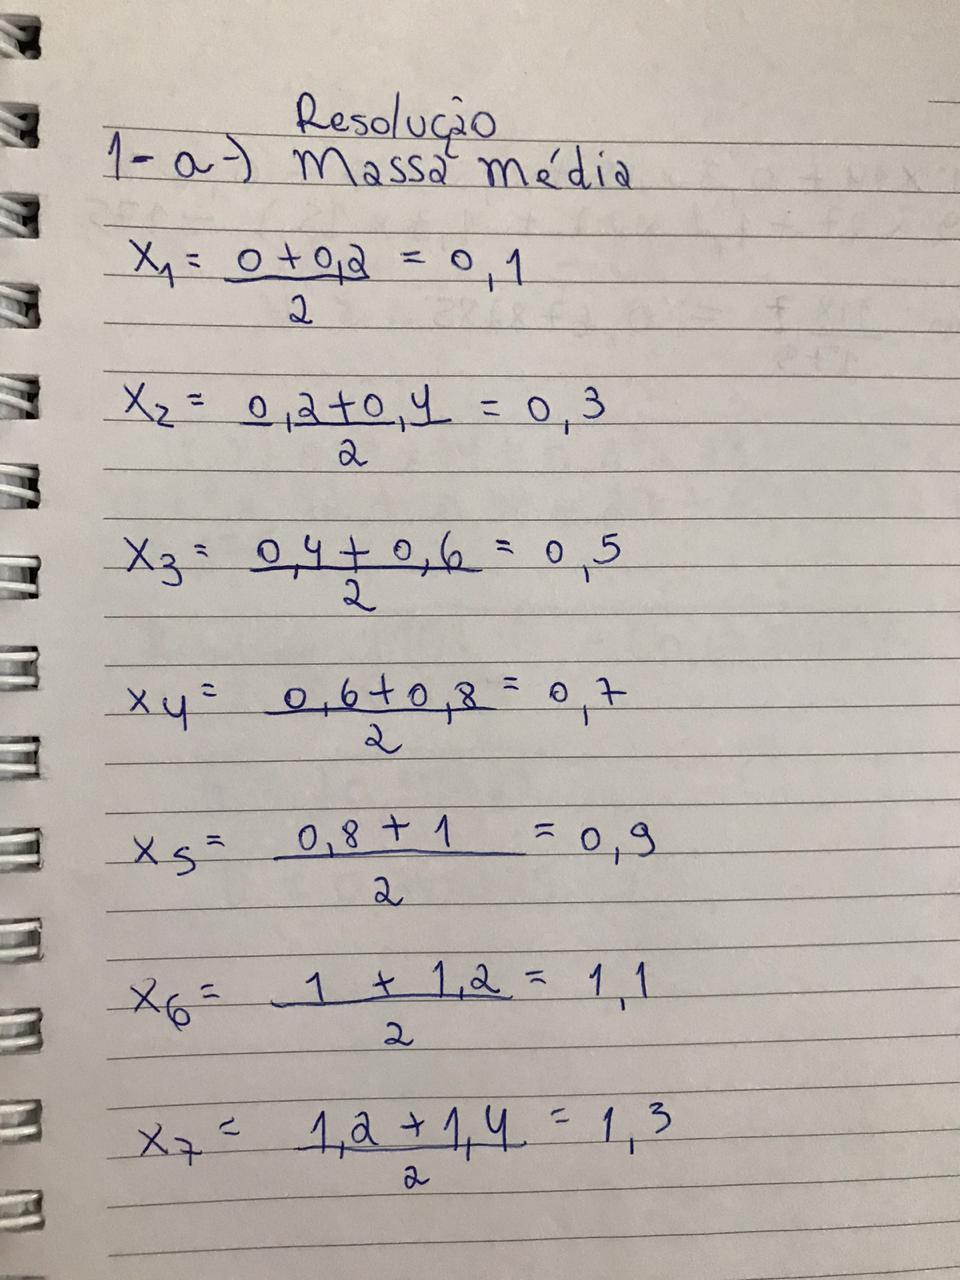 Resolução
1-a-) Massa média
X1 = 0+0,2 = 0,1
2
X2 = 0,2+0,4 = 0,3
2
X3 = 0,4+0,6 = 0,5
2
X4 = 0,6+0,8 = 0,7
2
X5 = 0,8+1 = 0,9
2
X6 = 1 + 1,2 = 1,1
2
X7 = 1,2+1,4 = 1,3
2